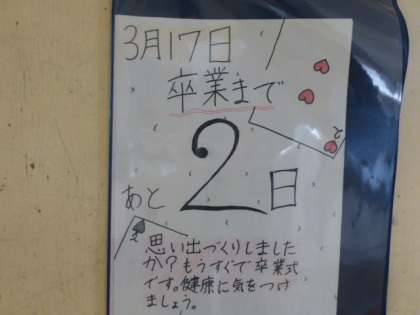 3月17日
卒業まで
あと2日
思い出づくりしました
か?もうすぐで卒業式
です。健康に気をつけ
ましょう。